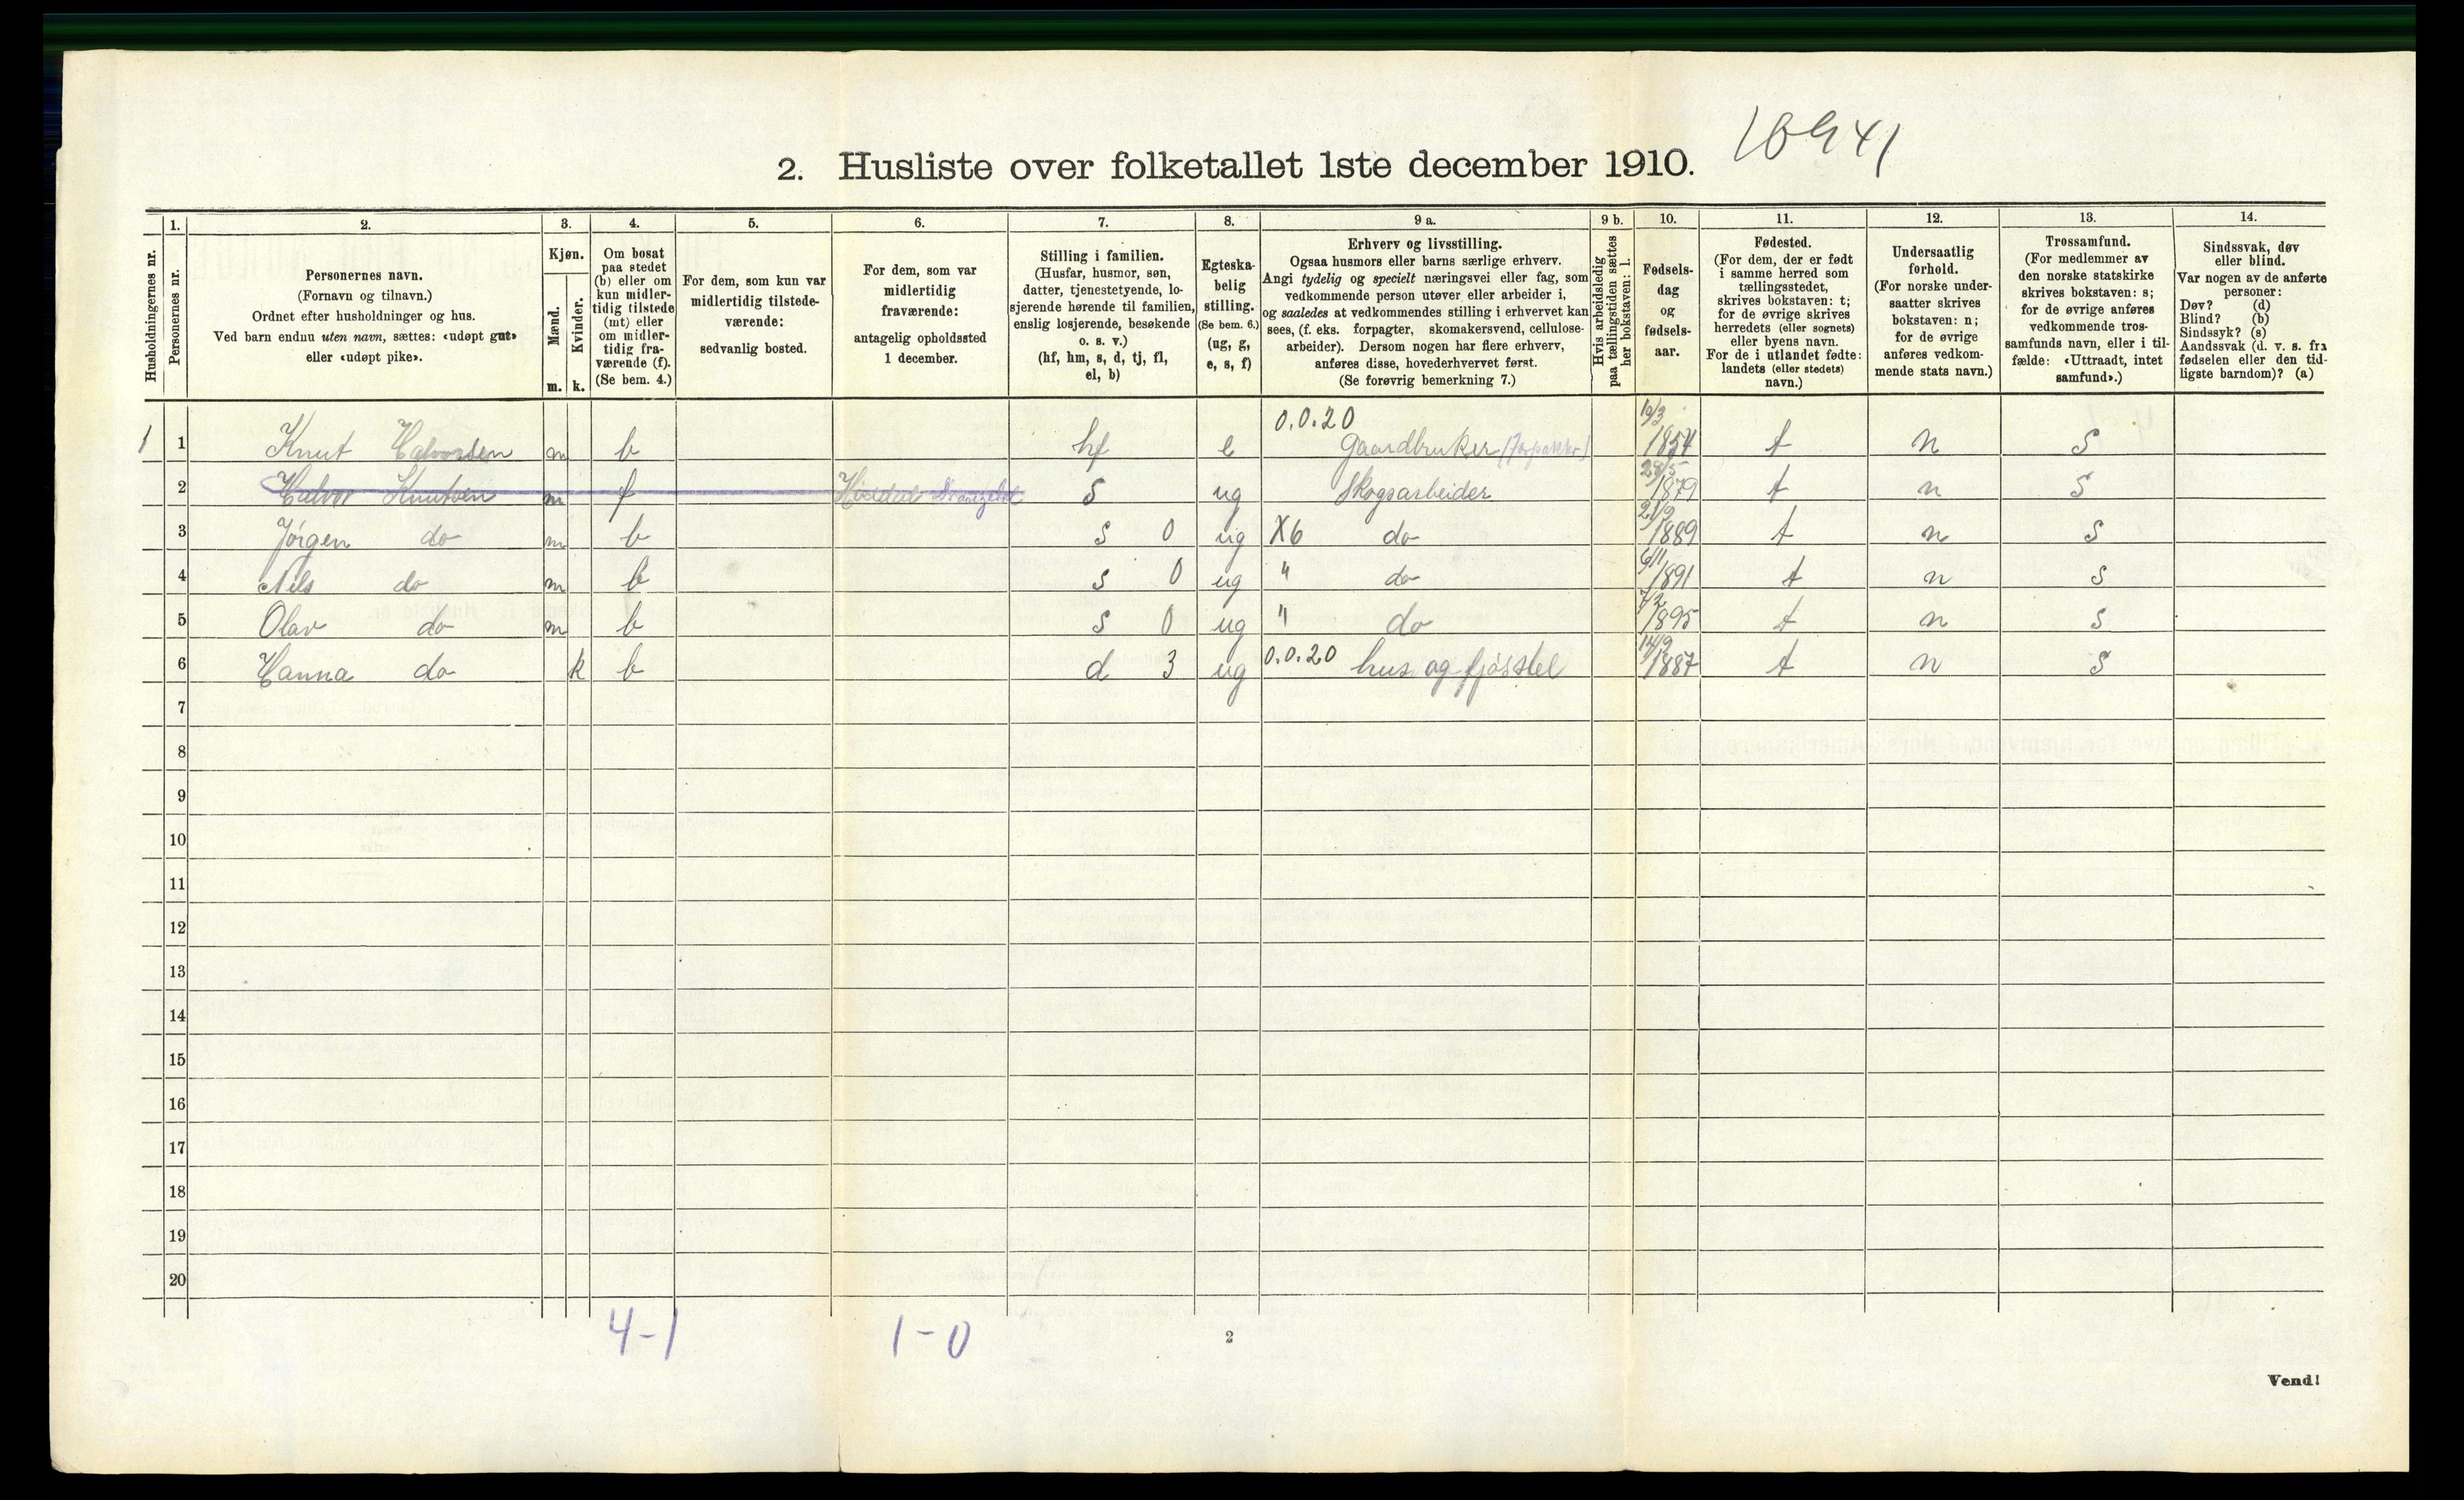 2. Husliste over folketallet 1ste december 1910.
Husholdningernes nr.
1.
Personernes nr.
2.
Personernes navn.
(Fornavn og tilnavn.)
Ordnet efter husholdninger og hus.
Ved barn endnu uten navn, sættes: «udøpt gut»
eller «udøpt pike».
3.
Kjøn.
Mænd.
m.
Kvinder.
k.
4.
Om bosat
paa stedet
(b) eller om
kun midler-
tidig tilstede
(mt) eller
om midler-
tidig fra-
værende (f).
(Se bem. 4.)
5.
For dem, som kun var
midlertidig tilstede-
værende:
sedvanlig bosted.
6.
For dem, som var
midlertidig
fraværende:
antagelig opholdssted
1 december.
7.
Stilling i familien.
(Husfar, husmor, søn,
datter, tjenestetyende, lo-
sjerende hørende til familien,
enslig losjerende, besøkende
o. s. v.)
(hf, hm, s, d, tj, fl,
el, b)
8.
Egteska-
belig
stilling.
(Se bem. 6.)
(ug, g,
e, s, f)
9 a.
Erhverv og livsstilling.
Ogsaa husmors eller barns særlige erhverv.
Angi tydelig og specielt næringsvei eller fag, som
vedkommende person utøver eller arbeider i,
og saaledes at vedkommendes stilling i erhvervet kan
sees, (f. eks. forpagter, skomakersvend, cellulose-
arbeider). Dersom nogen har flere erhverv,
anføres disse, hovederhvervet først.
(Se forøvrig bemerkning 7.)
9 b.
Hvis arbeidsledig
paa tællingstiden sættes
her bokstaven: l.
10.
Fødsels-
dag
og
fødsels-
aar.
11.
Fødested.
(For dem, der er født
i samme herred som
tællingsstedet,
skrives bokstaven: t;
for de øvrige skrives
herredets (eller sognets)
eller byens navn.
For de i utlandet fødte:
landets (eller stedets)
navn.)
12.
Undersaatlig
forhold.
(For norske under-
saatter skrives
bokstaven: n;
for de øvrige
anføres vedkom-
mende stats navn.)
13.
Trossamfund.
(For medlemmer av
den norske statskirke
skrives bokstaven: s;
for de øvrige anføres
vedkommende tros-
samfunds navn, eller i til-
fælde: «Uttraadt, intet
samfund».)
14.
Sindssvak, døv
eller blind.
Var nogen av de anførte
personer:
Døv? (d)
Blind? (b)
Sindssyk? (s)
Aandssvak (d. v. s. fra
fødselen eller den tid-
ligste barndom)? (a)
1 1 Knut Halvorsen m b hf e 0.0.20 Gaardbruker 10/3 1854 t n s
2 Halvor Knutsen m f s ug Skogsarbeider 1879 t n s
3 Jörgen do m b s 0 ug X6 do 21/9 1889 t n s
4 Nils do m b s 0 ug " do 6/11 1891 t n s
5 Olav do m b s 0 ug " do 7/2 1895 t n s
6 Hanna do k b d 3 ug 0.0.20 hus og fjösstel 14/9 1887 t n s
7
8
9
10
11
12
13
14
15
16
17
18
19
20
4-1 1-0
2
Vend!